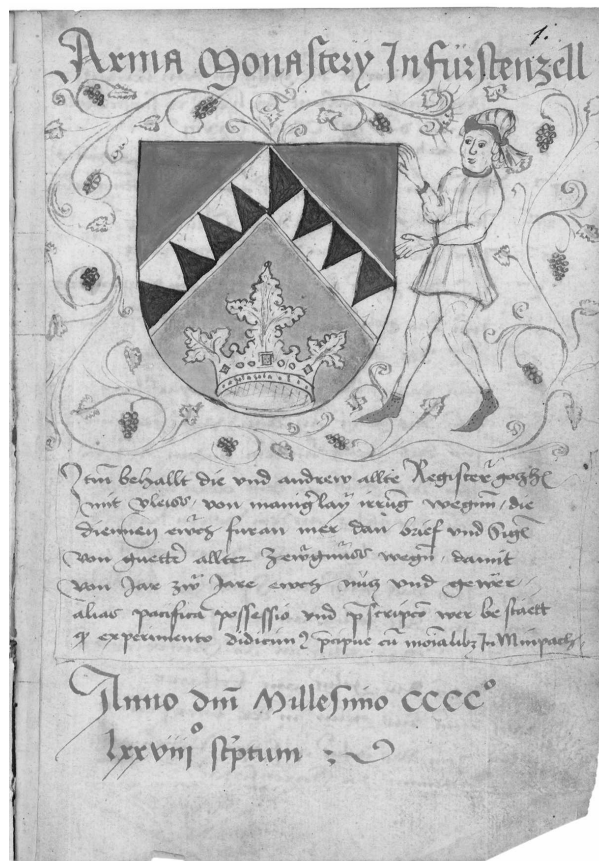 1.
Arma Monastery In fürstenzell
Itm̄ behallt die vnd andrew allte Register
mit vleiss, von manig'lay irrūg wegn̄, die
diennen ewch furan mer dan brief vnd Sigel
von guettē allter wegn̄, damit
von Jar zw̄ Jare ewch nücz vnd gewer,
alias pacifica possessio vnd p̄scripco wer bestaett
experimento didicim9 p̄cipue cū In Minpach,
Anno dm̄ Millesimo CCCCº
lxxviijº sc̄ptum